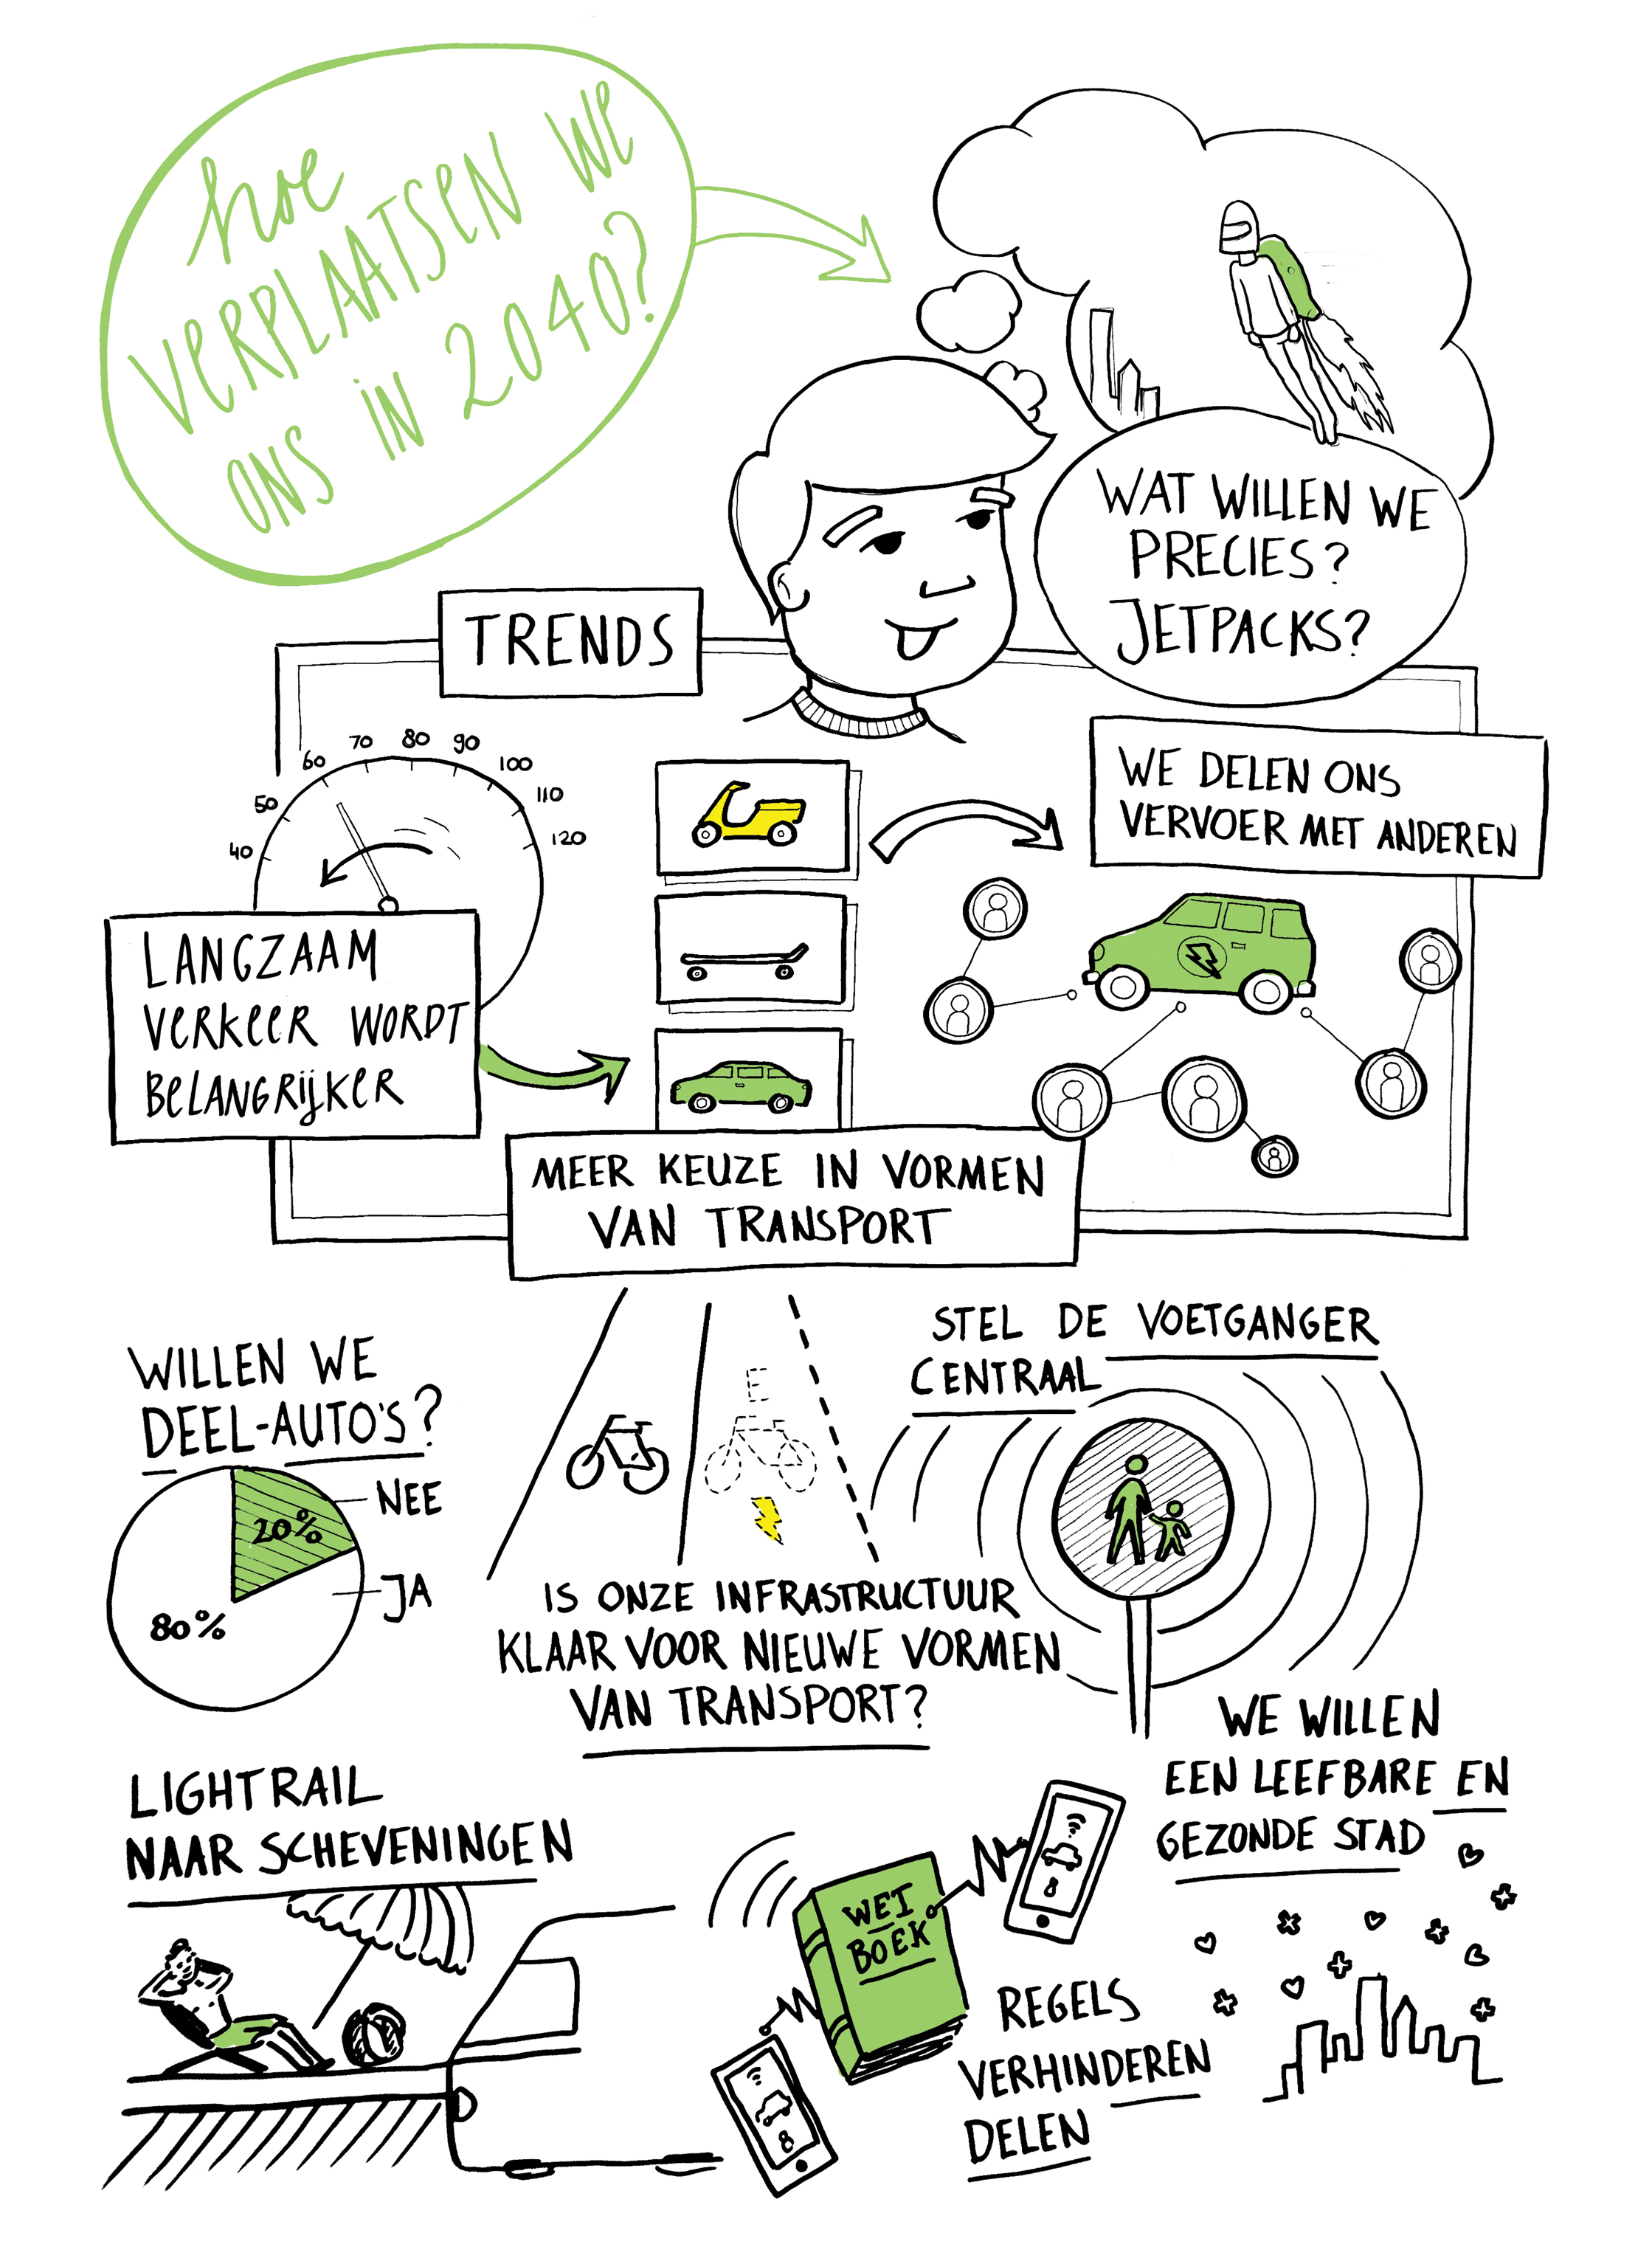 hoe
VERPLAATSEN WE
ONS IN 2040?
WAT WILLEN WE
PRECIES?
JETPACKS?
TRENDS
40
50
60
70
80
90
100
110
120
LANGZAAM
VERKEER WORDT
BELANGRIJKER
WE DELEN ONS
VERVOER MET ANDEREN
MEER KEUZE IN VORMEN
VAN TRANSPORT
WILLEN WE
DEEL-AUTO'S?
NEE
20%
JA
80%
E
IS ONZE INFRASTRUCTUUR
KLAAR VOOR NIEUWE VORMEN
VAN TRANSPORT?
STEL DE VOETGANGER
CENTRAAL
WE WILLEN
EEN LEEFBARE EN
GEZONDE STAD
LIGHTRAIL
NAAR SCHEVENINGEN
WET
BOEK
8
8
REGELS
VERHINDEREN
DELEN